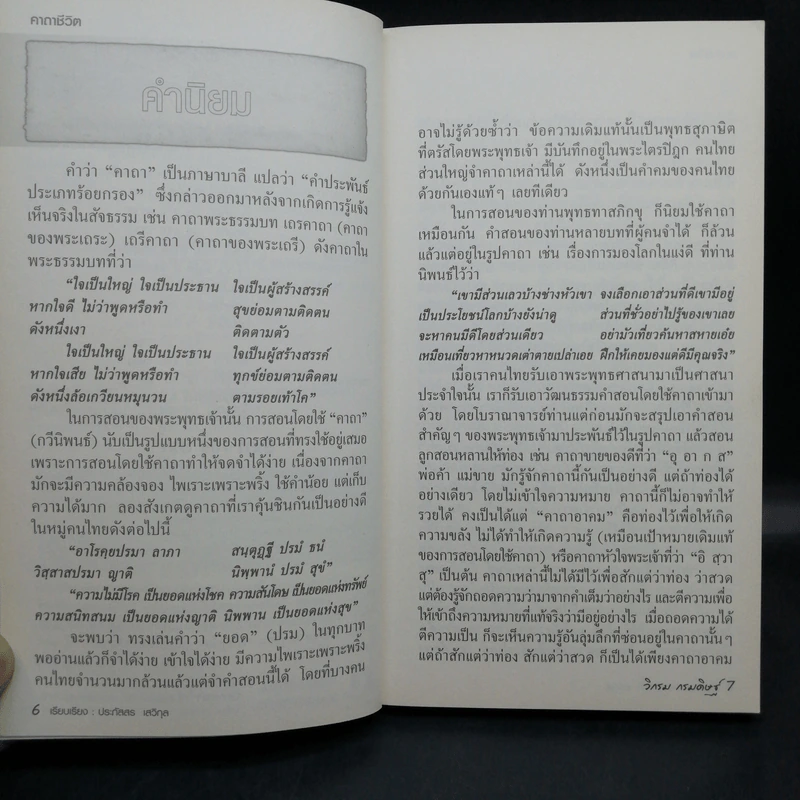 คาถาชีวิต
คำนิยม
คำว่า “คาถา” เป็นภาษาบาลี แปลว่า “คำประพันธ์
ประเภทร้อยกรอง” ซึ่งกล่าวออกมาหลังจากเกิดการรู้แจ้ง
เห็นจริงในสัจธรรม เช่น คาถาพระธรรมบท เถรคาถา (คาถา
ของพระเถระ) เถรีคาถา (คาถาของพระเถรี) ดังคาถาใน
พระธรรมบทที่ว่า
“ใจเป็นใหญ่ ใจเป็นประธาน ใจเป็นผู้สร้างสรรค์
หากใจดี ไม่ว่าพูดหรือทำ สุขย่อมตามติดตน
ดังหนึ่งเงา ติดตามตัว
ใจเป็นใหญ่ ใจเป็นประธาน ใจเป็นผู้สร้างสรรค์
หากใจเสีย ไม่ว่าพูดหรือทำ ทุกข์ย่อมตามติดตน
ดังหนึ่งล้อเกวียนหมุนวน ตามรอยเท้าโค”
ในการสอนของพระพุทธเจ้านั้น การสอนโดยใช้ “คาถา”
(กวีนิพนธ์) นับเป็นรูปแบบหนึ่งของการสอนที่ทรงใช้อยู่เสมอ
เพราะการสอนโดยใช้คาถาทำให้จดจำได้ง่าย เนื่องจากคาถา
มักจะมีความคล้องจอง ไพเราะเพราะพริ้ง ใช้คำน้อย แต่เก็บ
ความได้มาก ลองสังเกตดูคาถาที่เราคุ้นชินกันเป็นอย่างดี
ในหมู่คนไทยดังต่อไปนี้
“อาโรคฺยปรมา ลาภา สนฺตุฏฺฐี ปรมํ ธนํ
วิสฺสาสปรมา ญาติ นิพฺพานํ ปรมํ สุขํ”
“ความไม่มีโรค เป็นยอดแห่งโชค ความสันโดษ เป็นยอดแห่งทรัพย์
ความสนิทสนม เป็นยอดแห่งญาติ นิพพาน เป็นยอดแห่งสุข”
จะพบว่า ทรงเล่นคำว่า “ยอด” (ปรม) ในทุกบาท
พออ่านแล้วก็จำได้ง่าย เข้าใจได้ง่าย มีความไพเราะเพราะพริ้ง
คนไทยจำนวนมากล้วนแล้วแต่จำคำสอนนี้ได้ โดยที่บางคน
6 เรียบเรียง : ประภัสสร เสวิกุล
อาจไม่รู้ด้วยซ้ำว่า ข้อความเดิมแท้นั้นเป็นพุทธสุภาษิต
ที่ตรัสโดยพระพุทธเจ้า มีบันทึกอยู่ในพระไตรปิฎก คนไทย
ส่วนใหญ่จำคาถาเหล่านี้ได้ ดังหนึ่งเป็นคำคมของคนไทย
ด้วยกันเองแท้ๆ เลยทีเดียว
ในการสอนของท่านพุทธทาสภิกขุ ก็นิยมใช้คาถา
เหมือนกัน คำสอนของท่านหลายบทที่ผู้คนจำได้ ก็ล้วน
แล้วแต่อยู่ในรูปคาถา เช่น เรื่องการมองโลกในแง่ดี ที่ท่าน
นิพนธ์ไว้ว่า
“เขามีส่วนเลวบ้างช่างหัวเขา จงเลือกเอาส่วนที่ดีเขามีอยู่
เป็นประโยชน์โลกบ้างยังน่าดู ส่วนที่ชั่วอย่าไปรู้ของเขาเลย
จะหาคนมีดีโดยส่วนเดียว อย่ามัวเที่ยวค้นหาสหายเอ๋ย
เหมือนเที่ยวหาหนวดเต่าตายเปล่าเอย ฝึกให้เคยมองแต่ดีมีคุณจริง”
เมื่อเราคนไทยรับเอาพระพุทธศาสนามาเป็นศาสนา
ประจำใจนั้น เราก็รับเอาวัฒนธรรมคำสอนโดยใช้คาถาเข้ามา
ด้วย โดยโบราณาจารย์ท่านแต่ก่อนมักจะสรุปเอาคำสอน
สำคัญๆ ของพระพุทธเจ้ามาประพันธ์ไว้ในรูปคาถา แล้วสอน
ลูกสอนหลานให้ท่อง เช่น คาถาขายของดีที่ว่า “อุ อา ก ส”
พ่อค้า แม่ขาย มักรู้จักคาถานี้กันเป็นอย่างดี แต่ถ้าท่องได้
อย่างเดียว โดยไม่เข้าใจความหมาย คาถานี้ก็ไม่อาจทำให้
รวยได้ คงเป็นได้แต่ “คาถาอาคม” คือท่องไว้เพื่อให้เกิด
ความขลัง ไม่ได้ทำให้เกิดความรู้ (เหมือนเป้าหมายเดิมแท้
ของการสอนโดยใช้คาถา) หรือคาถาหัวใจพระเจ้าที่ว่า “อิ สฺวา
สุ” เป็นต้น คาถาเหล่านี้ไม่ได้มีไว้เพื่อสักแต่ว่าท่อง ว่าสวด
แต่ต้องรู้จักถอดความว่ามาจากคำเต็มว่าอย่างไร และตีความเพื่อ
ให้เข้าถึงความหมายที่แท้จริงว่ามีอยู่อย่างไร เมื่อถอดความได้
ตีความเป็น ก็จะเห็นความรู้อันลุ่มลึกที่ซ่อนอยู่ในคาถานั้นๆ
แต่ถ้าสักแต่ว่าท่อง สักแต่ว่าสวด ก็เป็นได้เพียงคาถาอาคม
วิกรม กรมดิษฐ์ 7